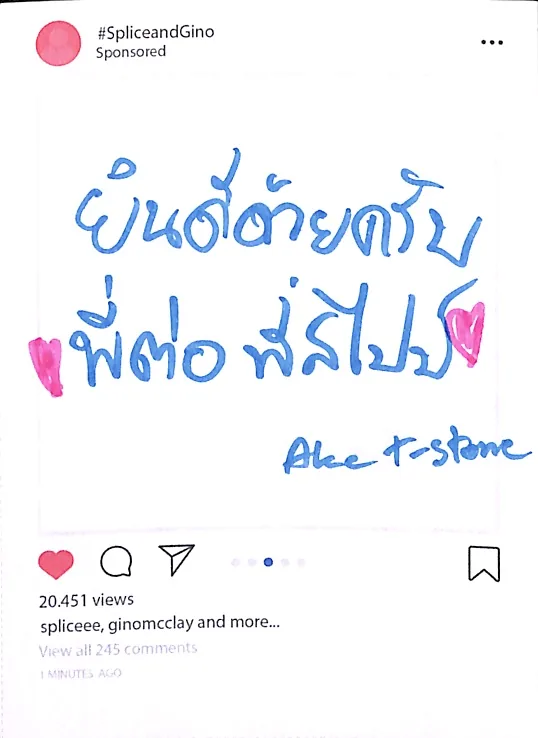 #SpliceandGino
Sponsored
ยินดีด้วยครับ
พี่ต่อ พี่สไปป์
Ake T-Stone
20.451 views
spliceee, ginomcclay and more...
View all 245 comments
1 MINUTES AGO